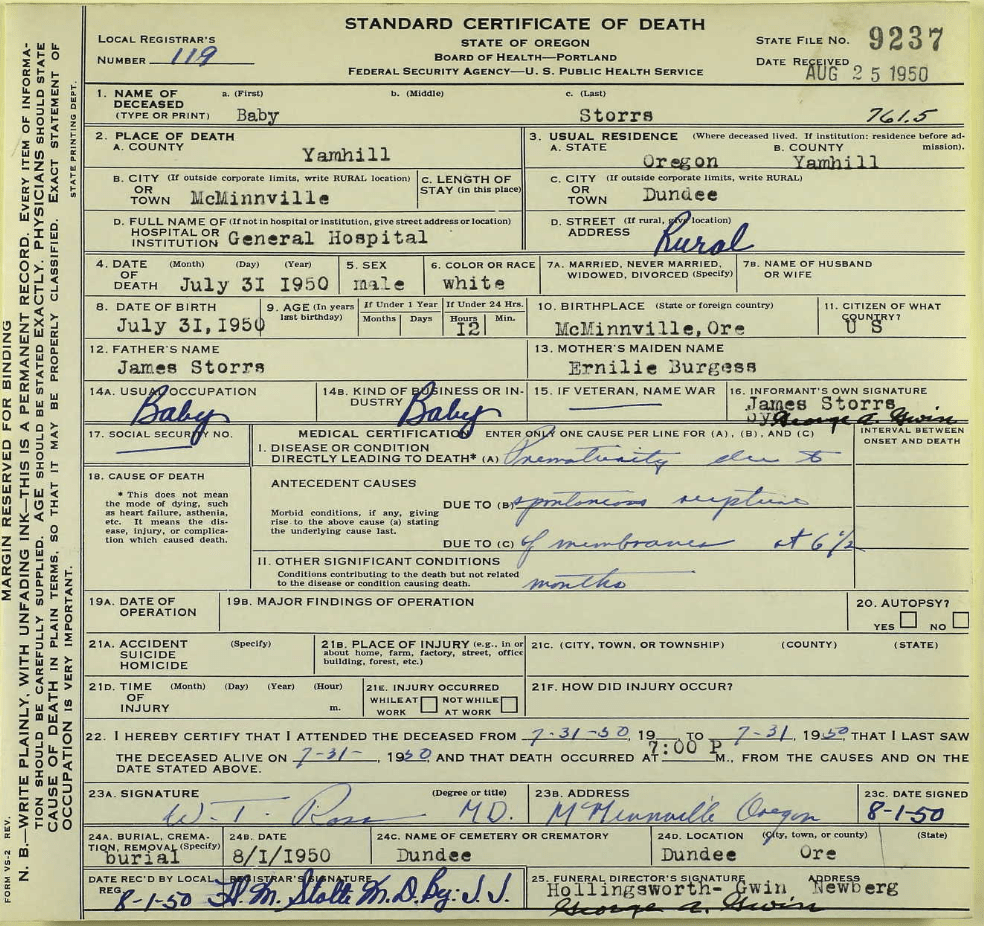 STANDARD CERTIFICATE OF DEATH
STATE OF OREGON
BOARD OF HEALTH—PORTLAND
FEDERAL SECURITY AGENCY—U. S. PUBLIC HEALTH SERVICE
LOCAL REGISTRAR'S
NUMBER 119
STATE FILE NO. 9237
DATE RECEIVED
AUG 25 1950
MARGIN RESERVED FOR BINDING
N. B.—WRITE PLAINLY, WITH UNFADING INK—THIS IS A PERMANENT RECORD. EVERY ITEM OF INFORMA-
TION SHOULD BE CAREFULLY SUPPLIED. AGE SHOULD BE STATED EXACTLY. PHYSICIANS SHOULD STATE
CAUSE OF DEATH IN PLAIN TERMS, SO THAT IT MAY BE PROPERLY CLASSIFIED. EXACT STATEMENT OF
OCCUPATION IS VERY IMPORTANT.
STATE PRINTING DEPT.
FORM VS-2 REV.
1. NAME OF DECEASED (TYPE OR PRINT) a. (First) b. (Middle) c. (Last)
Baby Storrs 761.5
2. PLACE OF DEATH
A. COUNTY
Yamhill
3. USUAL RESIDENCE (Where deceased lived. If institution: residence before ad-
mission).
A. STATE B. COUNTY
Oregon Yamhill
B. CITY (If outside corporate limits, write RURAL location)
OR
TOWN McMinnville
C. LENGTH OF
STAY (in this place)
C. CITY (If outside corporate limits, write RURAL)
OR
TOWN Dundee
D. FULL NAME OF (If not in hospital or institution, give street address or location)
HOSPITAL OR
INSTITUTION General Hospital
D. STREET (If rural, give location)
ADDRESS Rural
4. DATE OF DEATH (Month) (Day) (Year)
July 31 1950
5. SEX
male
6. COLOR OR RACE
white
7A. MARRIED, NEVER MARRIED,
WIDOWED, DIVORCED (Specify)
7B. NAME OF HUSBAND
OR WIFE
8. DATE OF BIRTH
July 31, 1950
9. AGE (In years
last birthday)
If Under 1 Year
Months Days
If Under 24 Hrs.
Hours Min.
12
10. BIRTHPLACE (State or foreign country)
McMinnville, Ore
11. CITIZEN OF WHAT
COUNTRY?
U S
12. FATHER'S NAME
James Storrs
13. MOTHER'S MAIDEN NAME
Ernilie Burgess
14A. USUAL OCCUPATION
Baby
14B. KIND OF BUSINESS OR IN-
DUSTRY Baby
15. IF VETERAN, NAME WAR
16. INFORMANT'S OWN SIGNATURE
James Storrs
by George A. Gwin
17. SOCIAL SECURITY NO.
MEDICAL CERTIFICATION ENTER ONLY ONE CAUSE PER LINE FOR (A), (B), AND (C)
INTERVAL BETWEEN
ONSET AND DEATH
I. DISEASE OR CONDITION
DIRECTLY LEADING TO DEATH* (A) Prematurity due to
18. CAUSE OF DEATH
* This does not mean
the mode of dying, such
as heart failure, asthenia,
etc. It means the dis-
ease, injury, or complica-
tion which caused death.
ANTECEDENT CAUSES
DUE TO (B) spontaneous rupture
Morbid conditions, if any, giving
rise to the above cause (a) stating
the underlying cause last.
DUE TO (C) of membranes at 6 1/2
II. OTHER SIGNIFICANT CONDITIONS
Conditions contributing to the death but not related
to the disease or condition causing death.
months
19A. DATE OF
OPERATION
19B. MAJOR FINDINGS OF OPERATION
20. AUTOPSY?
YES NO
21A. ACCIDENT (Specify)
SUICIDE
HOMICIDE
21B. PLACE OF INJURY (e.g., in or
about home, farm, factory, street, office
building, forest, etc.)
21C. (CITY, TOWN, OR TOWNSHIP) (COUNTY) (STATE)
21D. TIME (Month) (Day) (Year) (Hour)
OF
INJURY m.
21E. INJURY OCCURRED
WHILE AT WORK NOT WHILE AT WORK
21F. HOW DID INJURY OCCUR?
22. I HEREBY CERTIFY THAT I ATTENDED THE DECEASED FROM 7-31-50, 19 TO 7-31, 1950, THAT I LAST SAW
THE DECEASED ALIVE ON 7-31-, 1950, AND THAT DEATH OCCURRED AT 7:00 P M., FROM THE CAUSES AND ON THE
DATE STATED ABOVE.
23A. SIGNATURE (Degree or title)
W. T. Ross M.D.
23B. ADDRESS
McMinnville Oregon
23C. DATE SIGNED
8-1-50
24A. BURIAL, CREMA-
TION, REMOVAL (Specify)
burial
24B. DATE
8/1/1950
24C. NAME OF CEMETERY OR CREMATORY
Dundee
24D. LOCATION (City, town, or county) (State)
Dundee Ore
DATE REC'D BY LOCAL
REG. 8-1-50
REGISTRAR'S SIGNATURE
H. M. Stolte M.D. By: J. J.
25. FUNERAL DIRECTOR'S SIGNATURE ADDRESS
Hollingsworth- Gwin Newberg
George A. Gwin